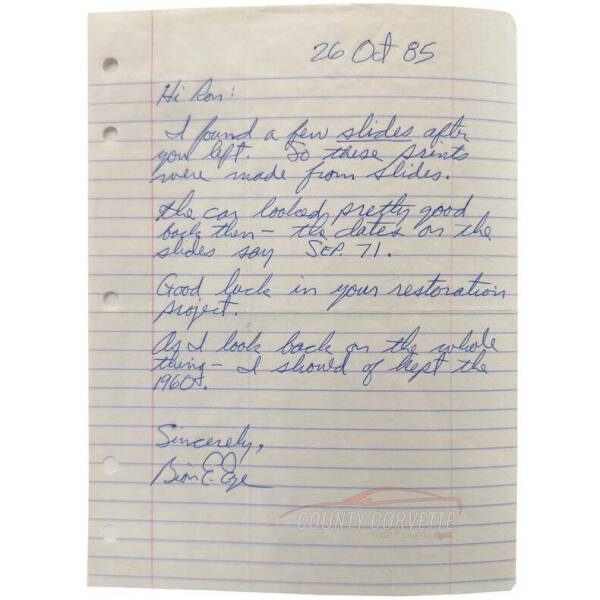 26 Oct 85
Hi Ron:
I found a few slides after
you left. So these prints
were made from slides.
The car looked pretty good
back then - the dates on the
slides say SEP. 71.
Good luck in your restoration
project.
As I look back on the whole
thing - I should of kept the
1960.
Sincerely,
E.
COUNTY CORVETTE